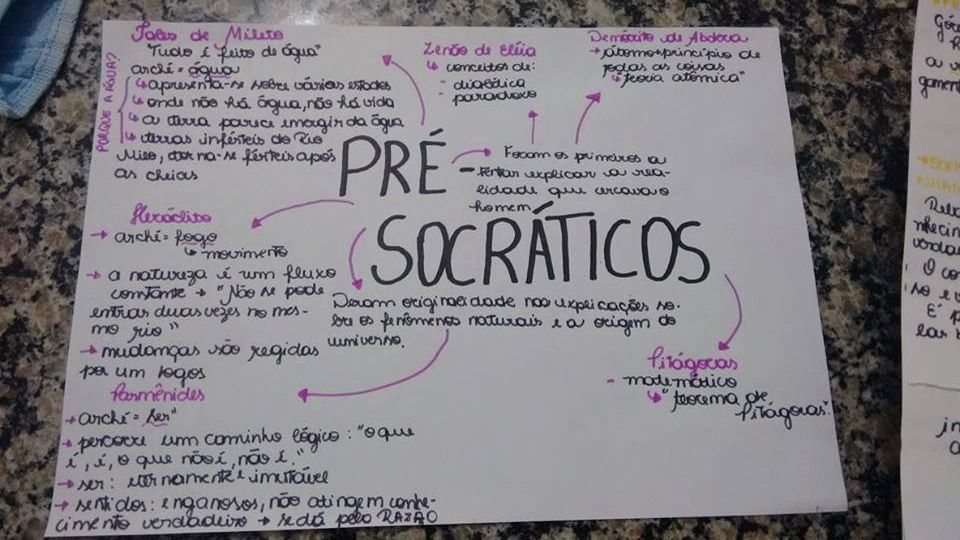 Tales de Mileto
"Tudo é feito de água"
arché = água
PORQUE A ÁGUA?
↳ apresenta-se sobre vários estados
↳ onde não há água, não há vida
↳ a terra parece emergir da água
↳ terras inférteis do Rio
Nilo, torna-se férteis após
as cheias
Zenão de Eléia
↳ conceitos de:
- dialética
- paradoxo
Demócrito de Abdera
→ átomo = princípio de
todas as coisas
↳ "teoria atômica"
PRÉ-
SOCRÁTICOS
Foram os primeiros a
tentar explicar a rea-
lidade que cercava o
homem
Heráclito
→ arché = fogo
↳ movimento
→ a natureza é um fluxo
constante → "Não se pode
entrar duas vezes no mes-
mo rio"
→ mudanças são regidas
por um logos
Deram originalidade nas explicações so-
bre os fenômenos naturais e a origem do
universo.
Pitágoras
- matemático
↳ "teorema de
Pitágoras".
Parmênides
→ arché = "Ser"
→ percorre um caminho lógico: "o que
é, é, o que não é, não é."
→ ser: eternamente imutável
→ sentidos: enganosos, não atingem conhe-
cimento verdadeiro → se dá pela RAZÃO